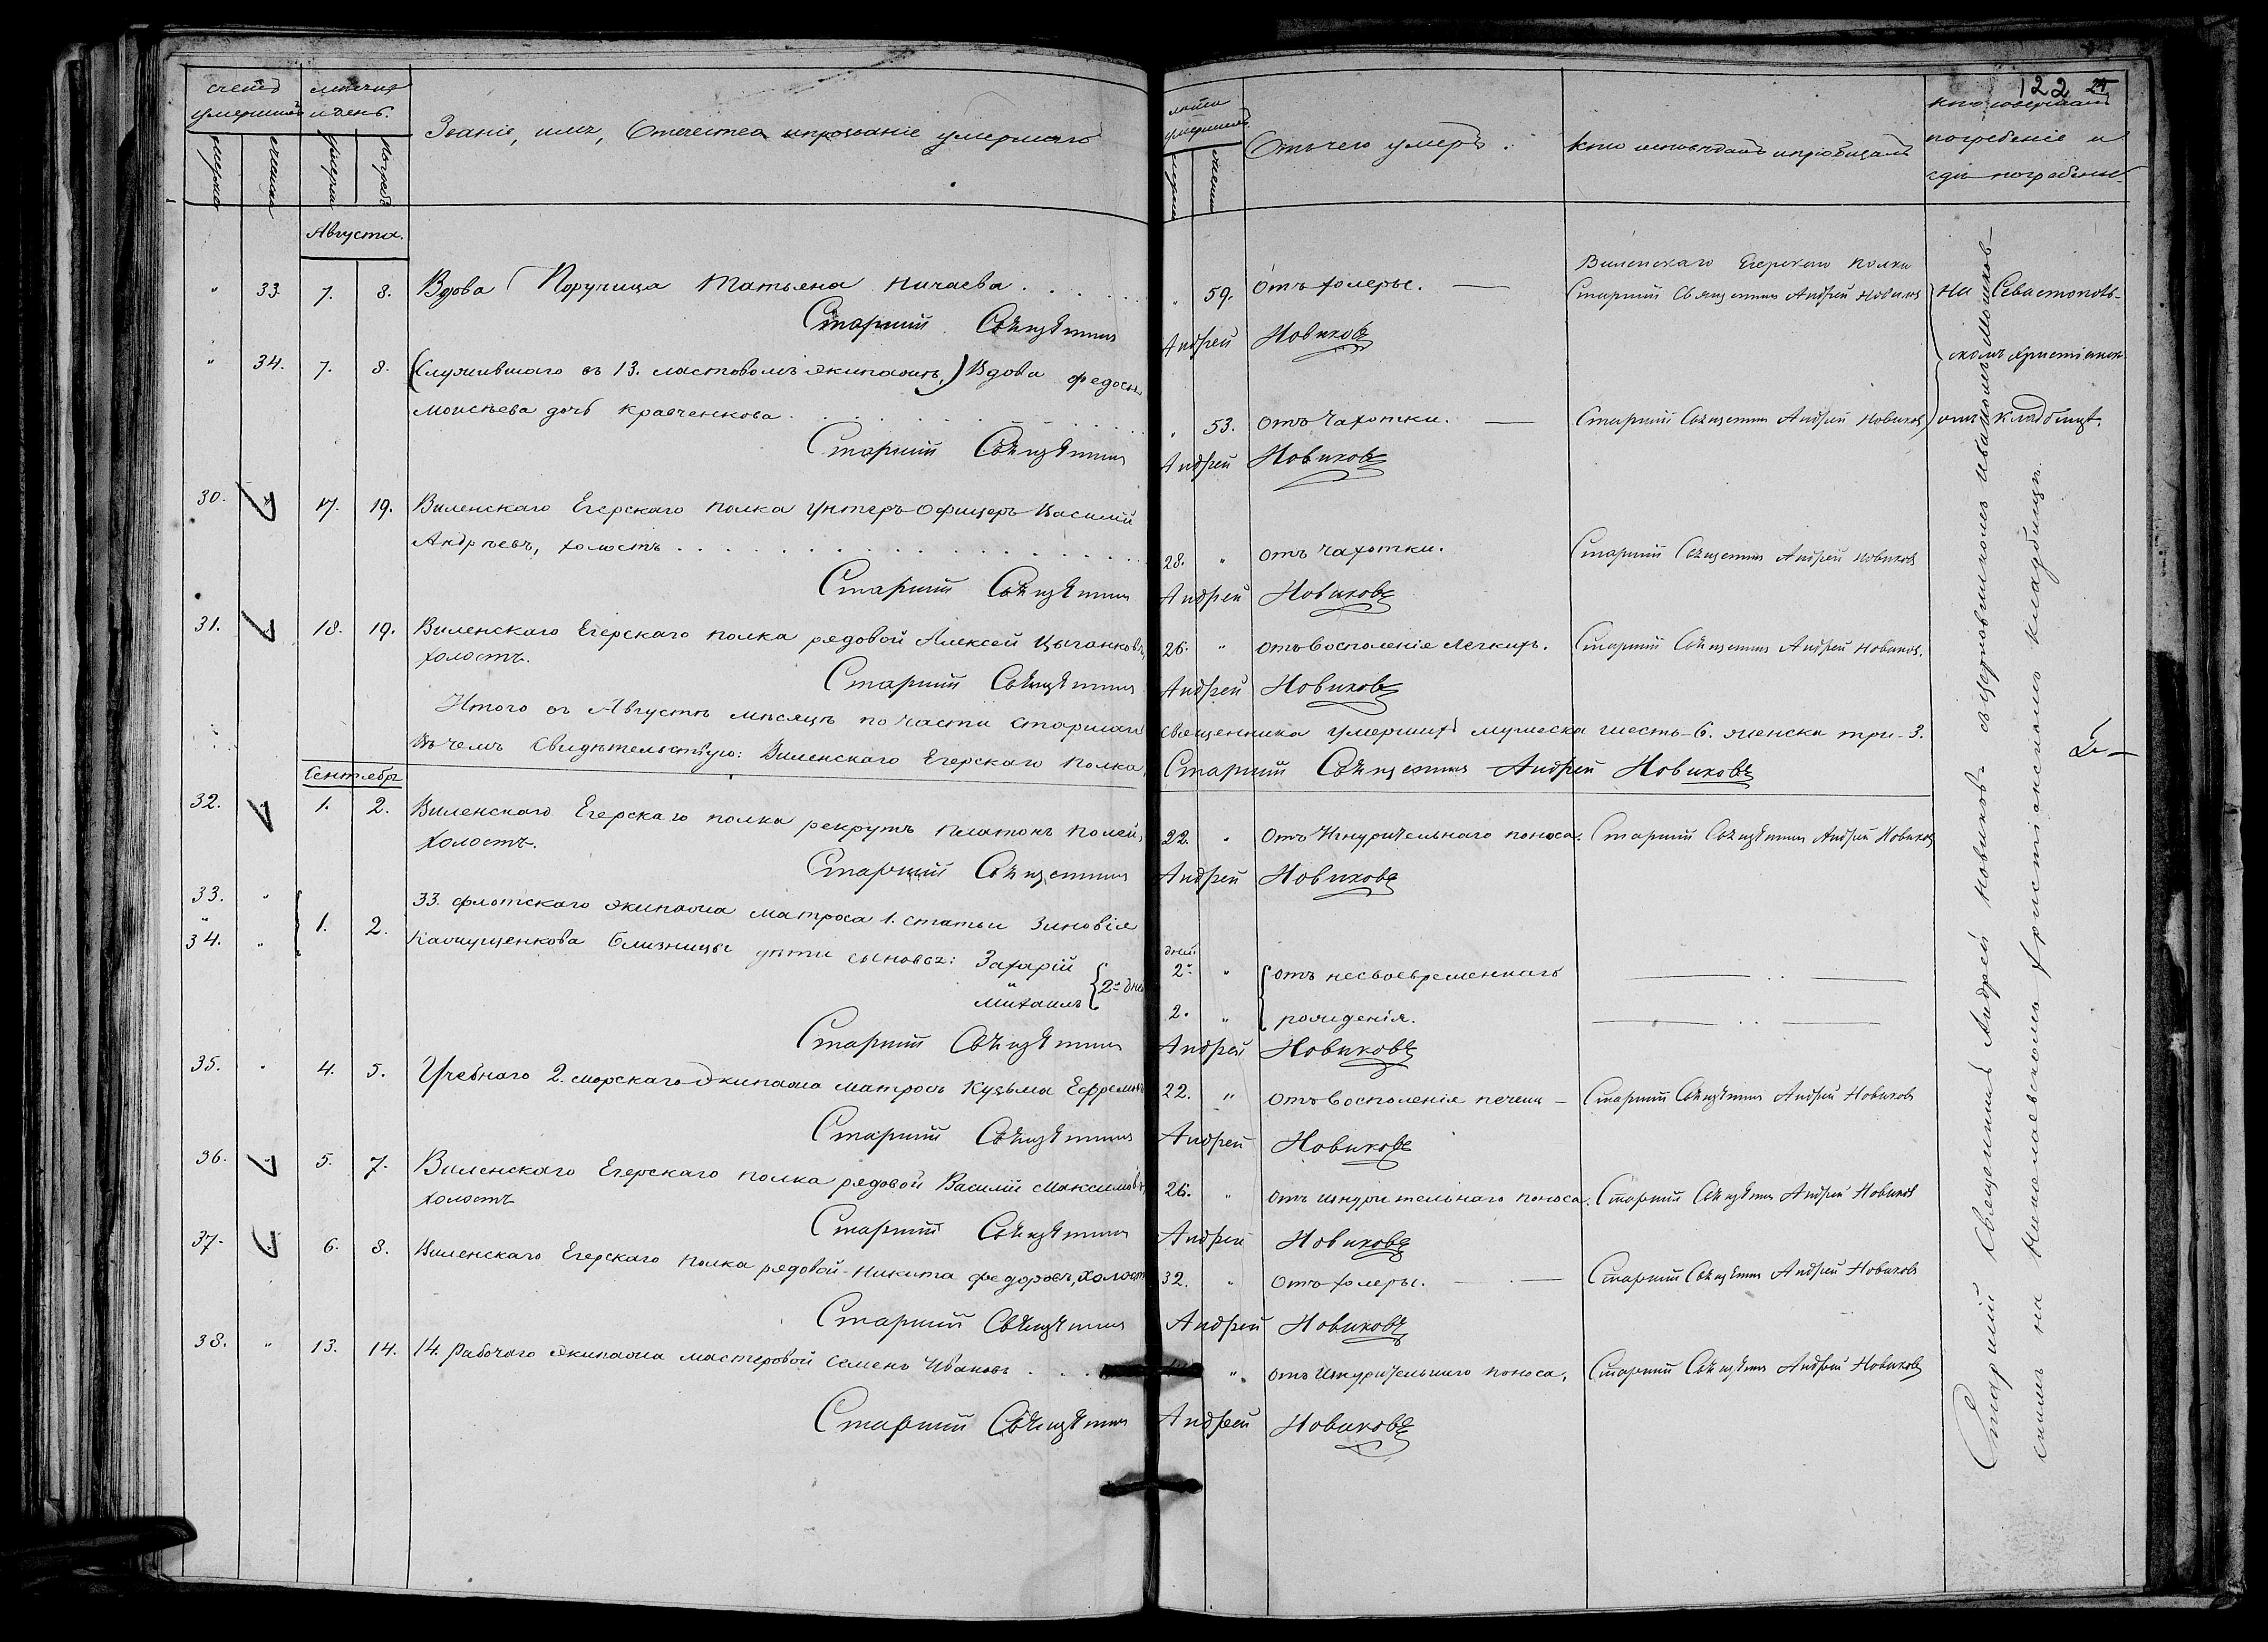 122 24
счетъ умершихъ
мѣсяцъ и день.
Званіе, имя, Отечество и прозваніе умершаго
лѣта умершихъ
Отъ чего умеръ.
кто исповѣдалъ и пріобщалъ
кто совершалъ погребеніе и гдѣ погребены
мужска
женска
умерш.
погреб.
мужска
женска
Августа.
Виленскаго Егерскаго полка
" 33. 7. 8. Вдова Поручица Татьяна Ничаева . . . . " 59. Отъ холеры. — Старшій Священникъ Андрей Новиковъ На Севастополь-
Старшій Священникъ Андрей Новиковъ
" 34. 7. 8. (Служившаго въ 13. ластовомъ экипажѣ,) Вдова Федосья скомъ христіанск-
Моисѣева дочь Кравченкова . . . . " 53. отъ чахотки. — Старшій Священникъ Андрей Новиковъ омъ кладбищѣ.
Старшій Священникъ Андрей Новиковъ
30. 17. 19. Виленскаго Егерскаго полка унтеръ-офицеръ Василій
Андрѣевъ, холостъ . . . . 28. " отъ чахотки. Старшій Священникъ Андрей Новиковъ
Старшій Священникъ Андрей Новиковъ
31. 18. 19. Виленскаго Егерскаго полка рядовой Алексей Цыганковъ, 26. " отъ Восполеніе Легкихъ. Старшій Священникъ Андрей Новиковъ.
холостъ.
Старшій Священникъ Андрей Новиковъ
Итого въ Августѣ мѣсяцѣ по части старшаго священника умершихъ мужеска шесть-6. женска три-3.
Въ чемъ Свидѣтельствую: Виленскаго Егерскаго полка, Старшій Священникъ Андрей Новиковъ
Сентября
32. 1. 2. Виленскаго Егерскаго полка рекрутъ Платонъ Полей, 22. " Отъ Изнурительнаго поноса. Старшій Священникъ Андрей Новиковъ
холостъ.
Старшій Священникъ Андрей Новиковъ
33. " 1. 2. 33. флотскаго экипажа матроса 1. статьи Зиновія
34. " Близницы дѣти сыновья: Захарій 2-е дней дней 2. " отъ несвоевременнаго
Михаилъ 2. " рожденія.
Старшій Священникъ Андрей Новиковъ
35. " 4. 5. Учебнаго 2. морскаго экипажа матросъ Кузьма Ефремовъ 22. " отъ Восполенія печени — Старшій Священникъ Андрей Новиковъ
Старшій Священникъ Андрей Новиковъ
36. 5. 7. Виленскаго Егерскаго полка рядовой Василій Максимовъ, 26. " отъ изнурительнаго поноса. Старшій Священникъ Андрей Новиковъ
холостъ
Старшій Священникъ Андрей Новиковъ
37. 6. 8. Виленскаго Егерскаго полка рядовой Никита Федоровъ, холостъ 32. " отъ холеры. — Старшій Священникъ Андрей Новиковъ
Старшій Священникъ Андрей Новиковъ
38. " 13. 14. 14. рабочаго экипажа мастеровой Семенъ Ивановъ . . . " отъ Изнурительнаго поноса, Старшій Священникъ Андрей Новиковъ
Старшій Священникъ Андрей Новиковъ
Старшій Священникъ Андрей Новиковъ
на Николаевскомъ христіанскомъ кладбищѣ.